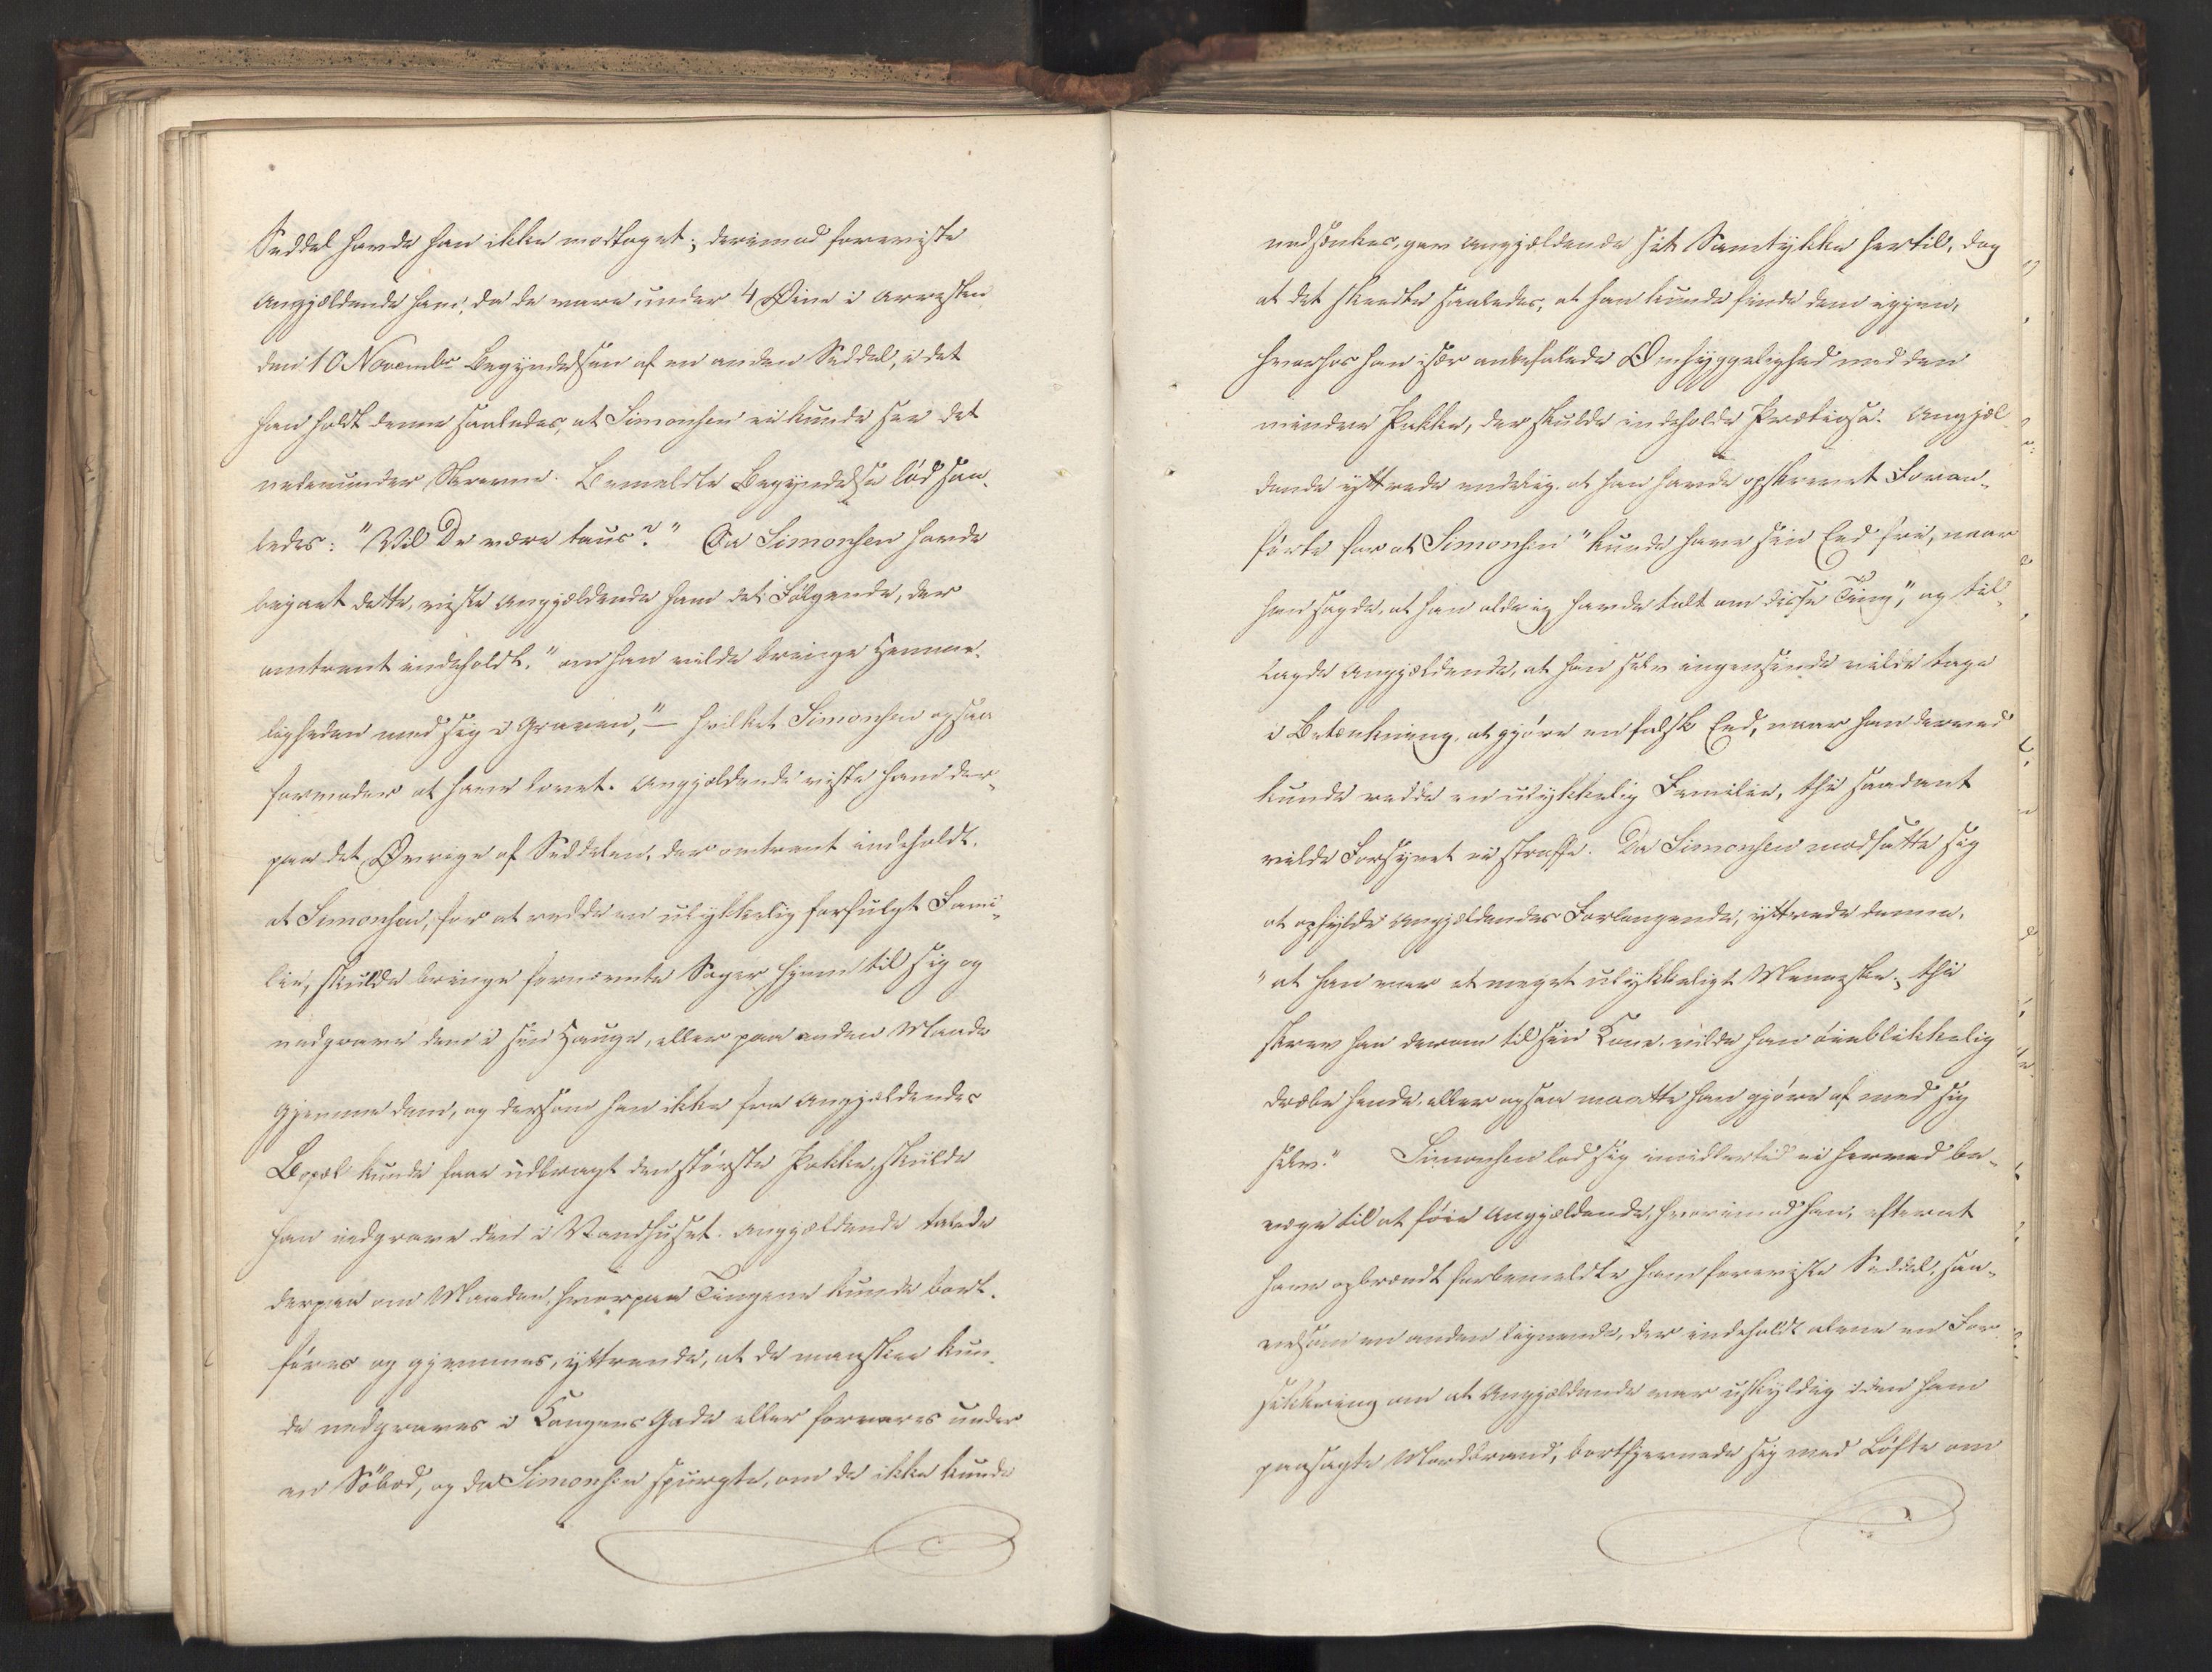 Seddel havde han ikke modtaget; derimod foreviste
Angjældende ham, da de vare under 4 Øine i Arresten
den 10 Novembr Begyndelsen af en anden Seddel, i det
han holdt denne saaledes, at Simonsen ei kunde see det
nedenunder Skrevne. Bemeldte Begyndelse lød saa-
ledes: "Vil De være taus?" Da Simonsen havde
bejaet dette, viste Angjældende ham det Følgende, der
omtrent indeholdt, "om han vilde bringe Hemme-
ligheden med sig i Graven," – hvilket Simonsen ogsaa
formoder at have lovet. Angjældende viste ham der-
paa det Øvrige af Seddelen, der omtrent indeholdt,
at Simonsen, for at redde en ulykkelig forfulgt Fami-
lie, skulde bringe fornævnte Sager hjem til sig og
nedgrave dem i sin Hauge, eller paa anden Maade
gjemme dem, og dersom han ikke fra Angjældendes
Bopæl kunde faae udbragt den største Pakke, skulde
han nedgrave den i Vandhuset. Angjældende talede
derpaa om Maaden, hvorpaa Tingene kunde bort-
føres og gjemmes, yttrende, at de maaskee kun-
de nedgraves i Kongens Gade eller forvares under
en Søbod, og da Simonsen spurgte, om de ikke kunde
nedsænkes, gav Angjældende sit Samtykke hertil, dog
at det skeedte saaledes, at han kunde finde dem igjen,
hvorhos han især anbefalede Omhyggelighed med den
mindre Pakke, der skulde indeholde Prætiosa. Angjæl-
dende yttrede endelig, at han havde opskrevet Foran-
førte for at Simonsen "kunde have sin Eed fri, naar
han sagde, at han aldrig havde talt om disse Ting", og til-
lagde Angjældende, at han selv ingensinde vilde tage
i Betænkning, at gjøre en falsk Eed, naar han derved
kunde redde en ulykkelig Familie, thi saadant
vilde Forsynet ei straffe. Da Simonsen modsatte sig
at opfylde Angjældendes Forlangende, yttrede denne,
"at han var et meget ulykkeligt Menneske; thi
skrev han derom til sin Kone, vilde han øieblikkelig
dræbe hende, eller ogsaa maatte han gjøre af med sig
selv." Simonsen lod sig imidlertid ei herved be-
væge til at føie Angjældende, hvorimod han, efterat
have opbrændt forbemeldte ham foreviste Seddel, saa-
velsom en anden lignende, der indeholdt alene en For-
sikkring om at Angjældende var uskyldig i den ham
paasagte Mordbrand, bortfjernede sig med Løfte om